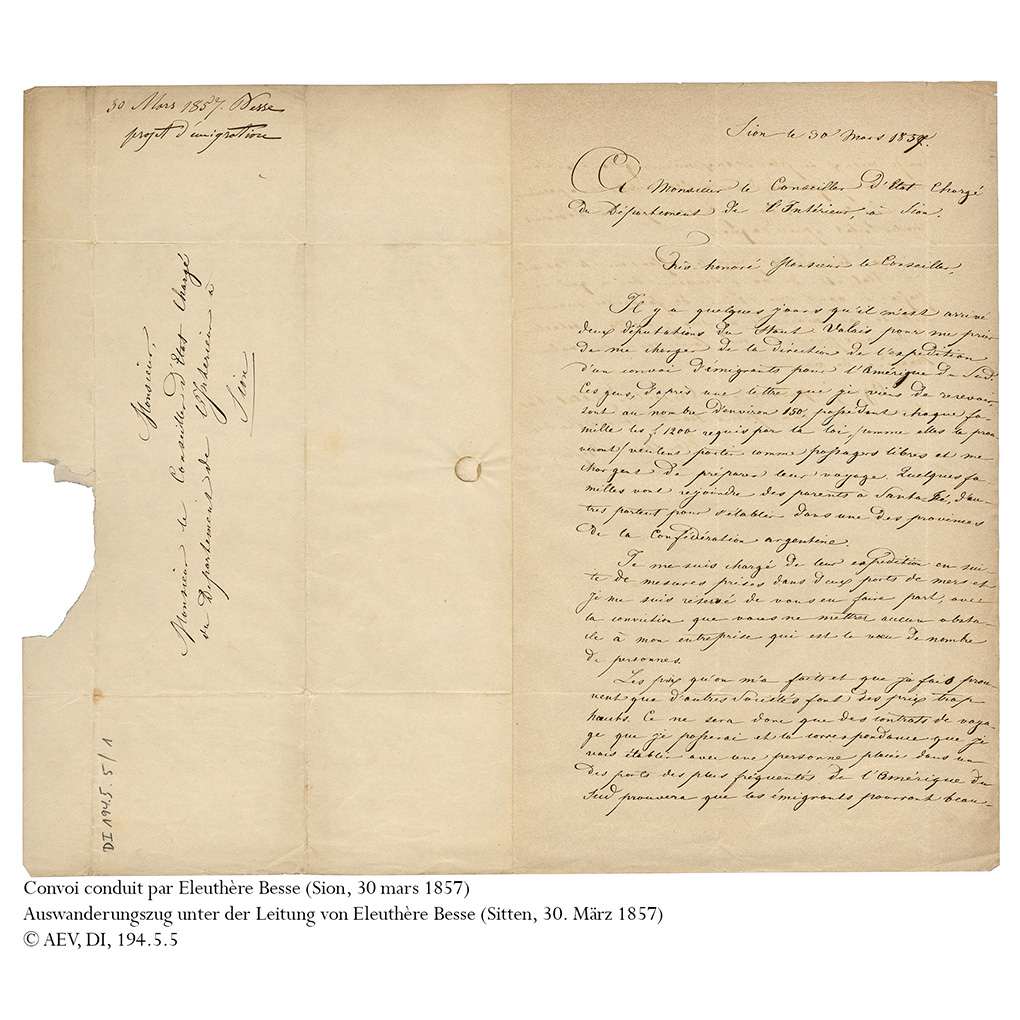 30 Mars 1857. Besse
projet d'émigration
Monsieur,
Monsieur le Conseiller d'Etat Chargé
du Département de l'Interieur à
Sion
DI 194.5.5/1
Sion le 30 Mars 1857.
A Monsieur le Conseiller d'Etat Chargé
du Département de l'Intérieur, à Sion.
Très-honoré Monsieur le Conseiller,
Il y a quelques jours qu'il m'est arrivé
deux députations du Haut Valais pour me prier
de me charger de la direction de l'expédition
d'un convoi d'émigrants pour l'Amérique du Sud.
Ces gens, d'après une lettre que je viens de recevoir,
sont au nombre d'environ 150, possédant chaque fa-
mille les f 1200 requis par la loi, (comme elles le prou-
veront) veulent partir comme passagers libres et me
chargent de préparer leur voyage. Quelques fa-
milles vont rejoindre des parents à Santa-Fé, d'au-
tres partent pour s'établir dans une des provinces
de la Confédération argentine.
Je me suis chargé de leur expédition en sui-
te de mesures prises dans deux ports de mers et
je me suis réservé de vous en faire part, avec
la conviction que vous ne mettrez aucun obsta-
cle à mon entreprise qui est le vœu de nombre
de personnes.
Les prix qu'on m'a faits et que je fais prou-
vent que d'autres Sociétés font des prix trop
hauts. Ce ne sera donc que des contrats de voya-
ge que je passerai et la correspondance que je
vais établir avec une personne placée dans un
des ports des plus fréquentés de l'Amérique du
Sud prouvera que les émigrants pourront beau-
Convoi conduit par Eleuthère Besse (Sion, 30 mars 1857)
Auswanderungszug unter der Leitung von Eleuthère Besse (Sitten, 30. März 1857)
© AEV, DI, 194.5.5